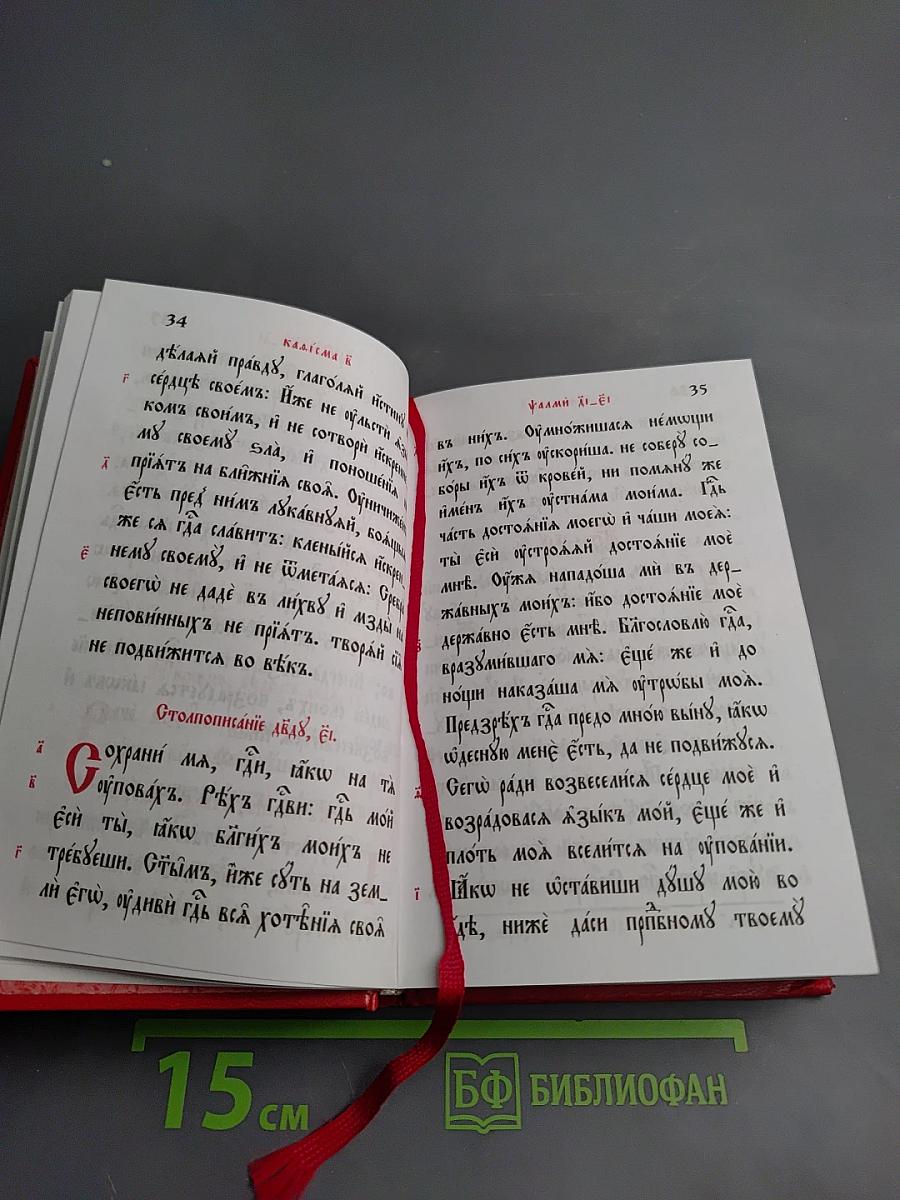 34
каѳі́сма в҃
дѣ́лаѧй пра́вдꙋ, глаго́лѧй и҆́стинꙋ
г҃ се́рдцѣ свое́мъ: И҆́же не ᲂу҆льстѝ
комъ свои́мъ, и҆ не сотворѝ
мꙋ̀ своемꙋ̀ ѕла̀, и҆ поноше́нїѧ
д҃ прїѧ́тъ на бли̑жнїѧ своѧ̑. Оу҆ничиже́нъ
є҆́сть пред̾ ни́мъ лꙋка́внꙋѧй, боѧ́щыѧ
же сѧ гдⷭ҇а сла́витъ: клены́йсѧ
є҃ немꙋ̀ своемꙋ̀, и҆ не ѿмета́ѧсѧ: Сребра̀
своегѡ̀ не дадѐ въ ли́хвꙋ и҆ мзды̀ на
непови́нныхъ не прїѧ́тъ. творѧ́й сїѧ̑
не подви́житсѧ во вѣ́къ.
Столпописа́нїе дв҃дꙋ, є҃і.
а҃ Сохрани́ мѧ, гдⷭ҇и, ꙗ҆́кѡ на тѧ̀
в҃ ᲂу҆пова́хъ. Рѣ́хъ гдⷭ҇ви: гдⷭ҇ь мо́й
є҆сѝ ты̀, ꙗ҆́кѡ бл҃ги́хъ мои́хъ не
г҃ тре́бꙋеши. Ст҃ы̑мъ, и҆̀же сꙋ́ть на зем_
лѝ є҆гѡ̀, ᲂу҆дивѝ гдⷭ҇ь всѧ̑ хотѣ̑нїѧ своѧ̑
35
ѱалмѝ д҃і_є҃і
въ ни́хъ. Оу҆мно́жишасѧ не́мѡщи
и҆́хъ, по си́хъ ᲂу҆скори́ша. не соберꙋ̀ со_
бо́ры и҆́хъ ѿ крове́й, ни помѧнꙋ̀ же
и҆ме́нъ и҆́хъ ᲂу҆стна́ма мои́ма. Гдⷭ҇ь
ча́сть достоѧ́нїѧ моегѡ̀ и҆ ча́ши моеѧ̀:
ты̀ є҆сѝ ᲂу҆строѧ́ѧй достоѧ́нїе моѐ
мнѣ̀. Оу҆́жѧ нападо́ша мѝ въ дер_
жа́вныхъ мои́хъ: и҆́бо достоѧ́нїе моѐ
держа́вно є҆́сть мнѣ̀. Бл҃гословлю̀ гдⷭ҇а,
вразꙋми́вшаго мѧ̀: є҆ще́ же и҆ до
но́щи наказа́ша мѧ̀ ᲂу҆трѡ́бы моѧ̑.
Предзрѣ́хъ гдⷭ҇а предо мно́ю вы́нꙋ, ꙗ҆́кѡ
ѡ҆деснꙋ́ю менѐ є҆́сть, да не подви́жꙋсѧ.
Сегѡ̀ ра́ди возвесели́сѧ се́рдце моѐ и҆
возра́довасѧ ѧ҆зы́къ мо́й, є҆ще́ же и҆
пло́ть моѧ̀ всели́тсѧ на ᲂу҆пова́нїи.
і҃ Ꙗ҆́кѡ не ѡ҆ста́виши дꙋ́шꙋ мою̀ во
а҆́дѣ, нижѐ да́си прпⷣбномꙋ твоемꙋ̀
15 см
БФ БИБЛИОФАН